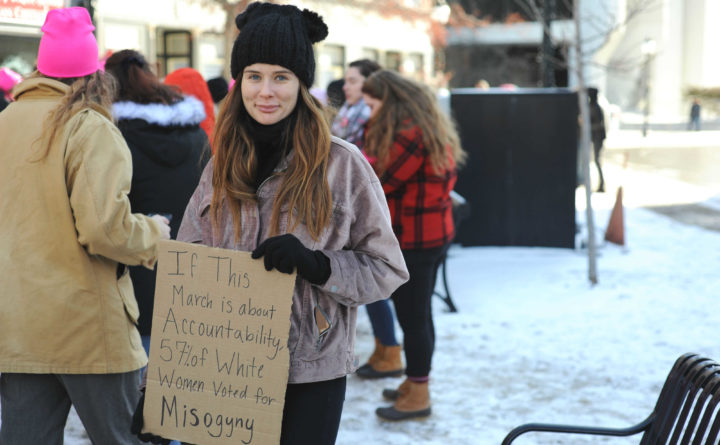 If This
March is about
Accountability,
57% of White
Women Voted for
Misogyny